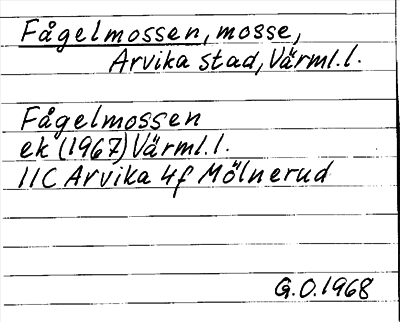 Fågelmossen, mosse,
Arvika stad, Värml.l.
Fågelmossen
ek (1967) Värml.l.
11C Arvika 4f Mölnerud
G.O.1968